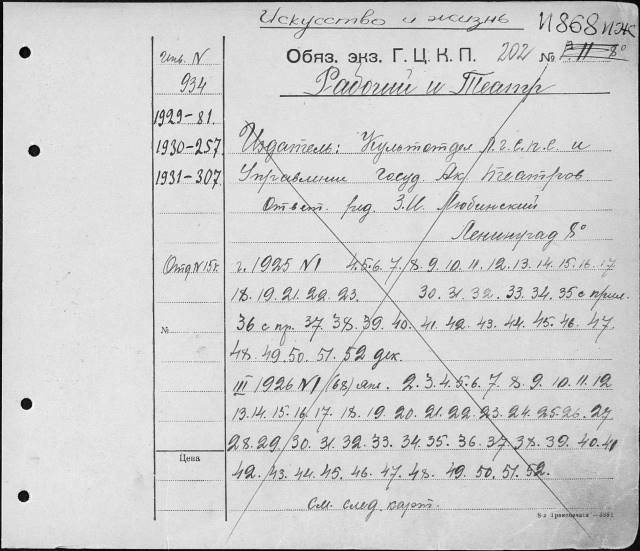 Искусство и жизнь
И868 ИЖ
Инв. N
934
Обяз. экз. Г. Ц. К. П. 202 № 8°
Рабочий и Театр
1929-81.
1930-257
1931-307.
Издатель: Культотдел Л.г.с.п.с и
Управлении Госуд. Ак. Театров
Ответ. ред. З.И. Любинский
Ленинград 8°
Отд N 15г.
г. 1925 N1 4.5.6.7.8.9.10.11.12.13.14.15.16.17
18.19.21.22.23. 30.31.32.33.34.35 с прил.
№
36 с пр. 37.38.39.40.41.42.43.44.45.46.47
48.49.50.51.52 дек.
III 1926 N1 (68) янв. 2.3.4.5.6.7.8.9.10.11.12
13.14.15.16.17.18.19.20.21.22.23.24.25.26.27
28.29.30.31.32.33.34.35.36.37.38.39.40.41
Цена
42.43.44.45.46.47.48.49.50.51.52.
См. след. карт.